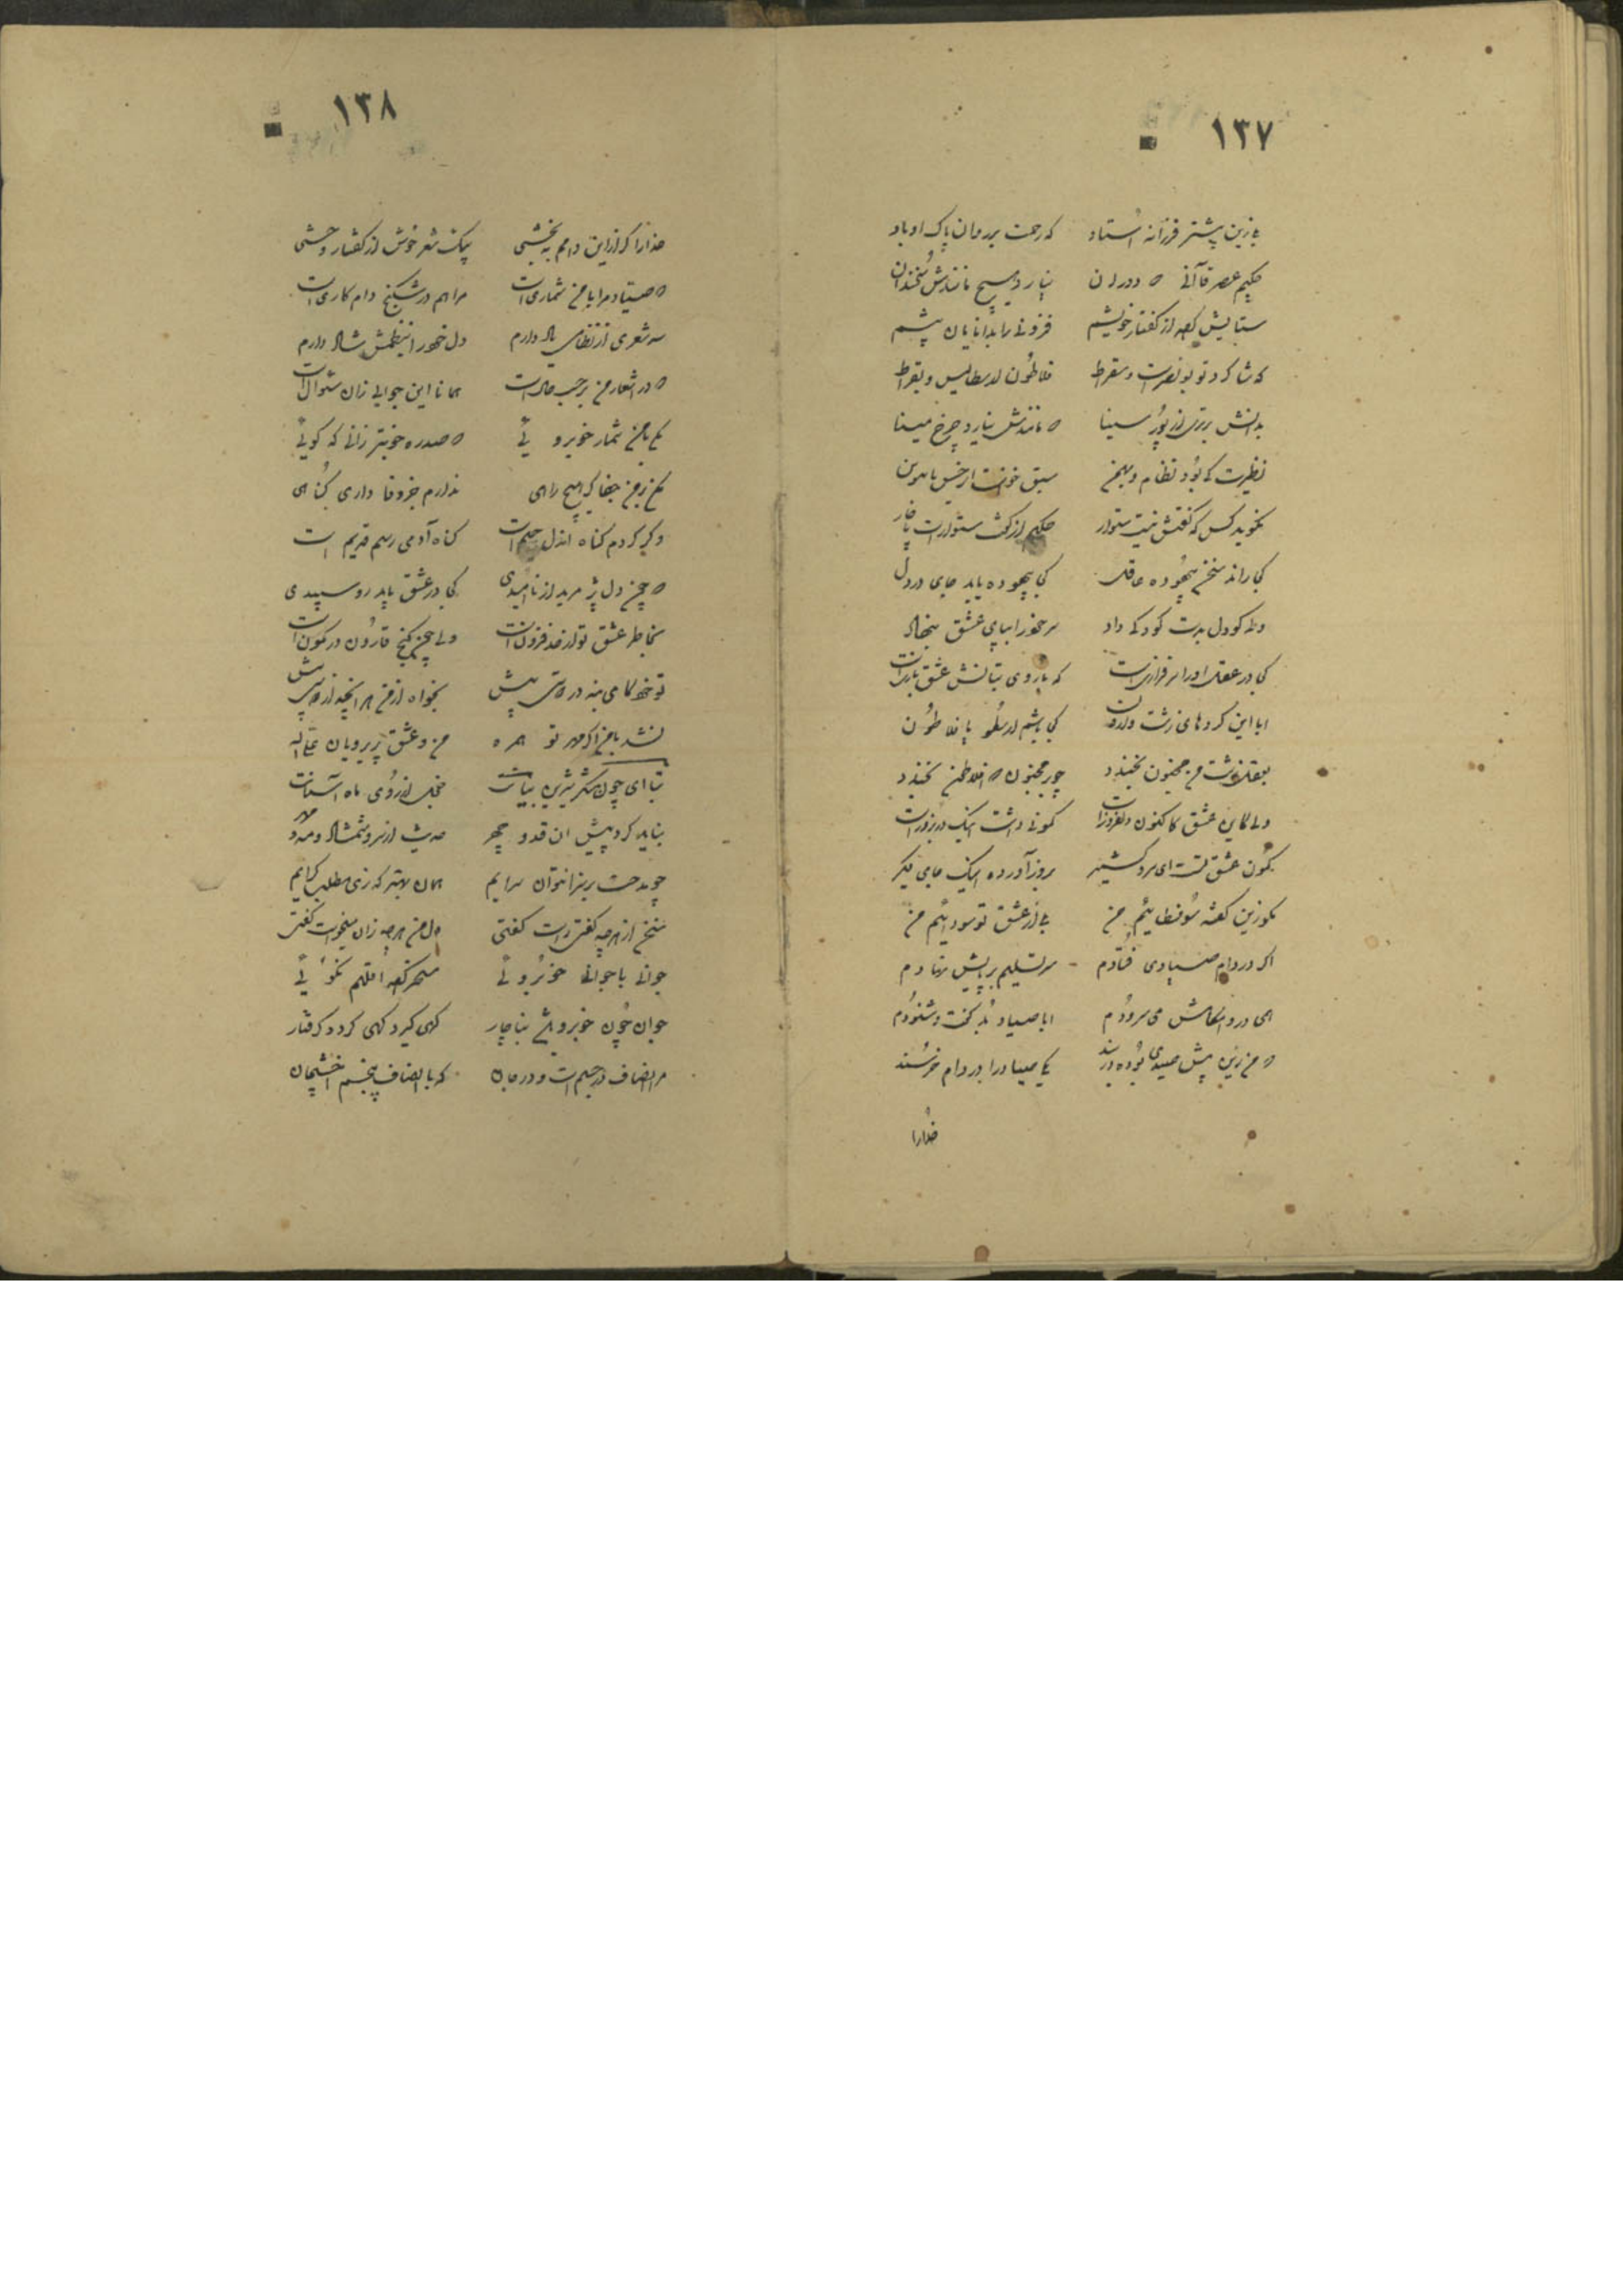 ۱۳۷
بلی زین پیشتر فرزانه استاد که رحمت بر روان پاک او باد
حکیم عصر قاآنی که دوران نیارد هیچ مانندش سخندان
ستایش کرد از گفتار خویشم فزونی داد بر دانایان پیشم
که شاگرد تو بونصر است و سقراط فلاطون ارسطالیس و بقراط
بدانش برتری از پور سینا که مانندش نیارد چرخ مینا
نظیرت کی بود نظام و بهمن سبق
نگوید کس که گفتش نیست ستوار حکیم از گفت ستوار است ناچار
کی راند سخن بیهوده عاقل کی بیهوده یابد جای در دل
ولی کو دل بدست کودکی داد سر خود را بپای عشق بنهاد
کی در عقل او را سرفرازی است که با روی بتانش عشق بازی است
ابا این کردهای زشت وارون کی باشم ارسطو یا فلاطون
بعقل زشت من مجنون بخندد چو بر مجنون که افلاطن بخندد
ولی کاین عشق کاکنون دلفروز است کمونی داشت اینک در بروز است
کمون عشق تست ای مرد کشمیر بروز آورده اینک جای دیگر
مگو زین گفته سوفسطائیم من بلی از عشق تو سودائیم من
اگر در دام صیادی فتادم سر تسلیم بر پایش نهادم
همی در وامکامش می سرودم ابا صیاد بد گفت و شنودم
که من زین پیش صیدی بوده در بند یکی صیاد را در دام خرسند
خدا را
۱۳۸
خدا را گر از این دامم ببخشی بیک شعر خوش از گفتار وحشی
که صیاد مرا با من شماری است مرا هم در شکنج دام کاری است
سه شعری از نظامی یاد دارم دل خود را بنظمش شاد دارم
که در اشعار من بر حسب حال است همانا این جوابی زان سئوال است
مکن با من شمار خوبروئی که صد ره خوبتر زانی که گوئی
مکن بر من جفا کز هیچ راهی ندارم جز وفا داری گناهی
وگر کردم گناه اندل حلیم است گناه آدمی رسم قدیم است
که چن دل پژمرید از ناامیدی کی در عشق یابد روسپیدی
بخاطر عشق تو از حد فزون است ولی چن گنج قارون در کمون است
تو خود گامی بنه در دوستی پیش بخواه از من هر آنچه از دوستی بیش
نشد با من اگر مهر تو همره من و عشق پریرویان علی الله
بتا ای چون شکر شیرین بیانت خجل از روی ماه آسمانت
بناید کرد پیش ان قد و چهر حدیث از سرو شمشاد و مه و مهر
چو مدحت بر سزا نتوان سرایم همان بهتر که زی مطلب گرایم
سخن از هر چه گفتی راست گفتی دل من هر چه زان میخواست گفتی
جوانی با جوانی خوبروئی مسخر کرد اقلیم نکوئی
جوان چون خوبرو باشد بناچار گهی گیرد گهی گردد گرفتار
مر انصاف که با انصاف